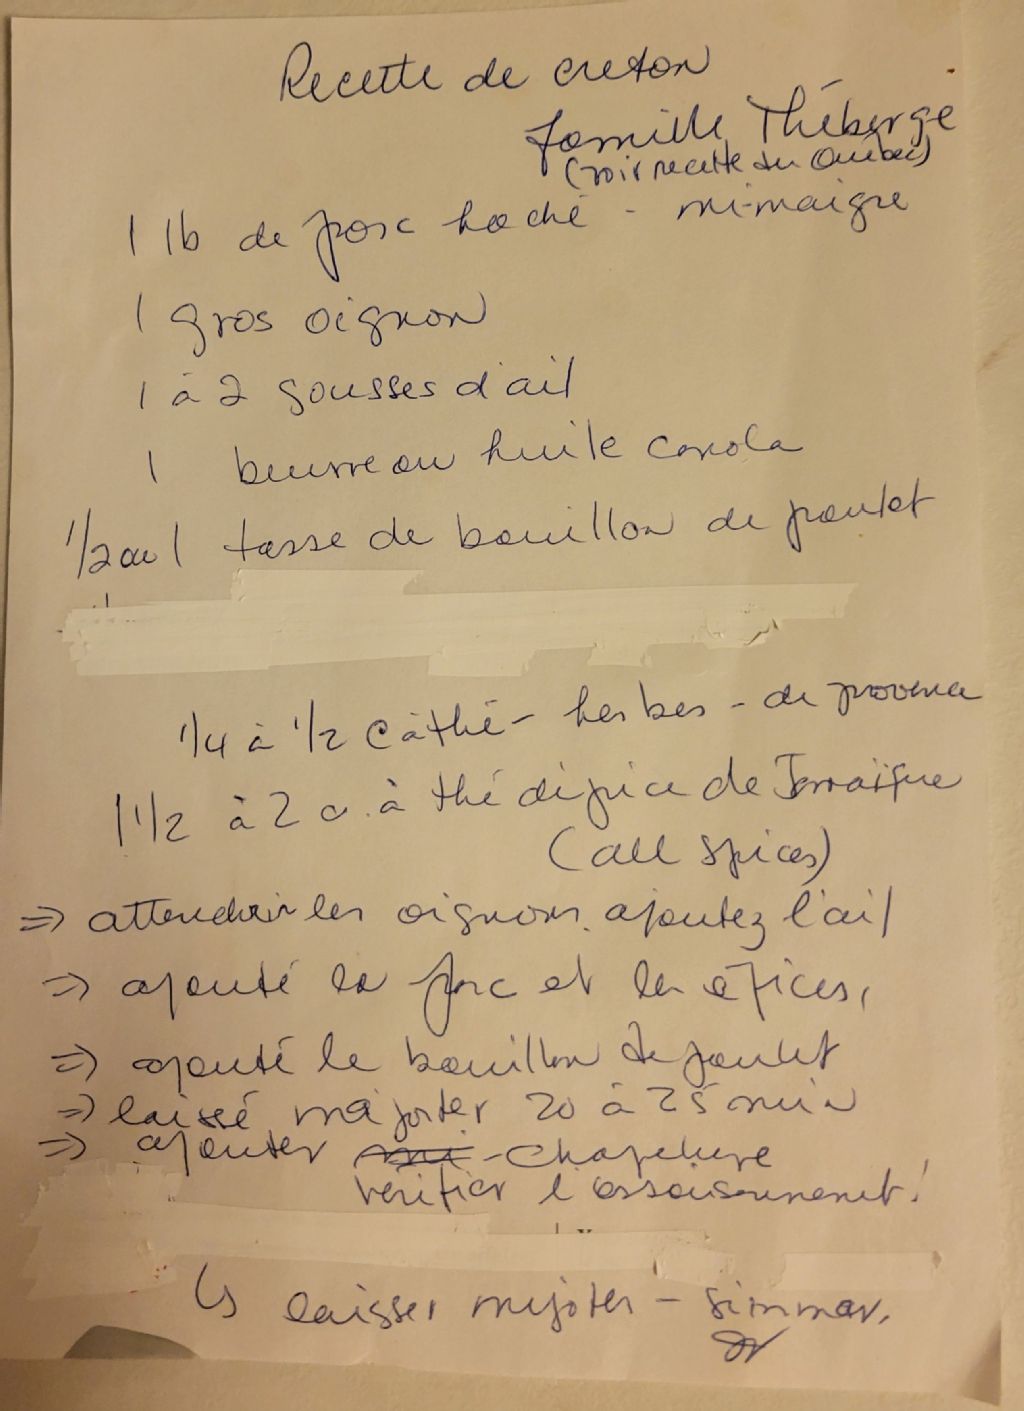 Recette de creton
famille Théberge
(voir recette du Québec)
1 lb de porc haché - mi-maigre
1 gros oignon
1 à 2 gousses d'ail
1 beurre ou huile canola
1/2 ou 1 tasse de bouillon de poulet
1/4 à 1/2 c à thé - herbes - de provence
1 1/2 à 2 c. à thé d'épice de Jamaïque
(all spices)
⇒ attendrir les oignons. ajoutez l'ail
⇒ ajouté le porc et les épices,
⇒ ajouté le bouillon de poulet
⇒ laissé mijoter 20 à 25 min
⇒ ajouter - chapelure
vérifier l'assaisonnement!
↳ laisser mijoter - simmer.